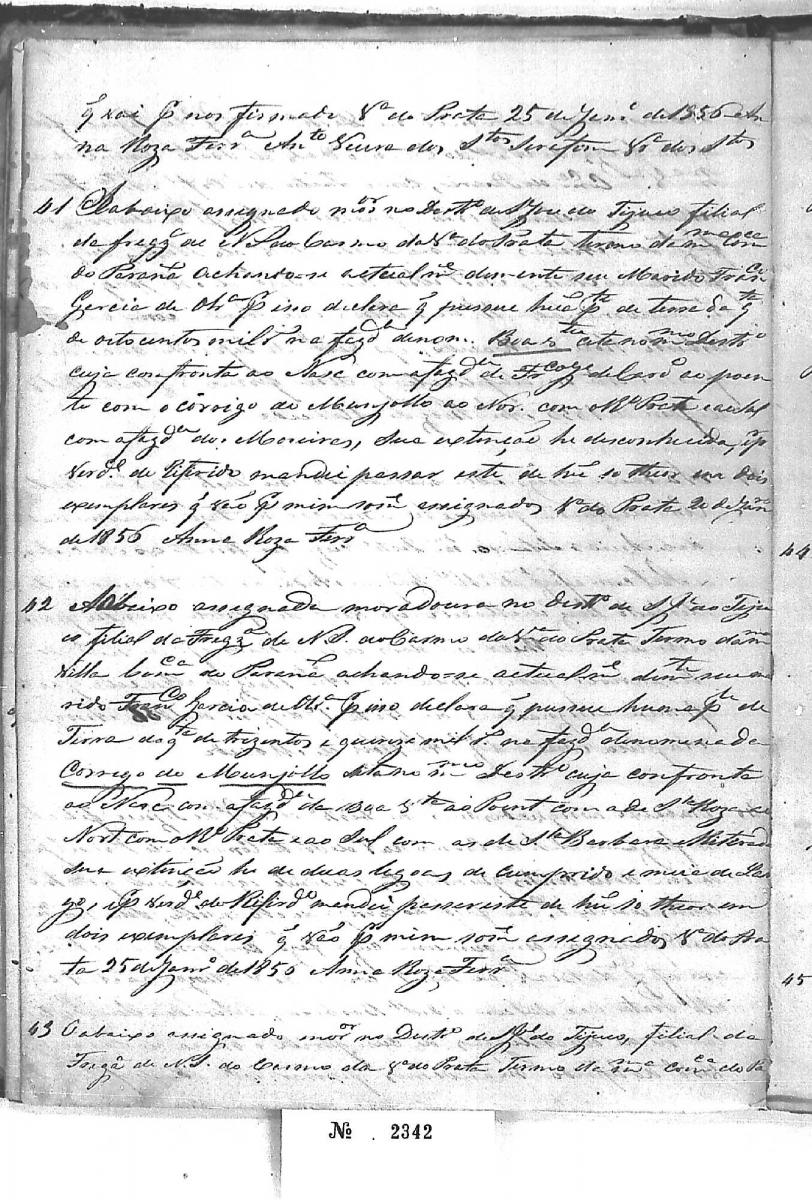 q̃ vai p̃ nos firmado Vª do Prata 25 de Janrº de 1856 An
na Roza Ferrª e Antº Vieira dos Stos Serafim Vª dos Stos
41 Aabaixo assignado mor. no Destº de S. José do Tijuco filial
da fregª de N S do Carmo da Vª do Prata termo da mª Com
do Paranã Achando-se actualmᵉ demente seu Marido Franco
Garcia de Olª p̃ iso declara q̃ pussue hũa pte de terra da qtª
de oito centos mil rˢ na fazdª denom. Boa Vtª cita no mmo Destrº
cuja confronta ao Nasc com a fazdª de Frco de Cardº ao poen
te com o córrigo do Munjollo ao Nor. com o Rº Prata e ao Sul
com a fazdª dos Moreiras, sua extinção he desconhecida, e p̃
verdᵉ do Referido mandei passar este de hũ só theor em dois
exemplares q̃ vão p̃ mim sómᵉ assignados Vª do Prata 20 de Janr
de 1856 Anna Roza Ferrª
42 Aabaixo assignada moradoura no destº de S Jᵉ do Tiju
co filial da Fregª de N. S. do Carmo da Vª do Prata Termo da mª
Villa Comca do Paranã achando-se actualmᵉ demte seu ma
rido Franco Garcia de Olª p̃ iso declara q̃ pussue huma pte de
Terra da qtª de trizentos e quinze mil rˢ na fazdª denominada
Corrigo do Munjollo cita no mmo Destrº cuja confronta
ao Nasc com a fazdª da Boa Vtª ao Point com a de Sta Roza ao
Nort com o Rº Prata e ao Sul com as de Sta Barbara e Miterad
sua extinção he de duas legoas de Cumprido e meia de Lar
go, e p̃ verdᵉ do Refirdº mandei passar este de hũ só theor em
dois exemplares q̃ vão p̃ mim sómᵉ assignados Vª do Pra
ta 25 de Janrº de 1856 Anna Roza Ferrª
43 Oabaixo assignado mor. no Destrº de S José do Tijuco, filial da
Fregª de N. S. do Carmo da Vª do Prata Termo da mª comca do Pa
44
45
Nº 2342